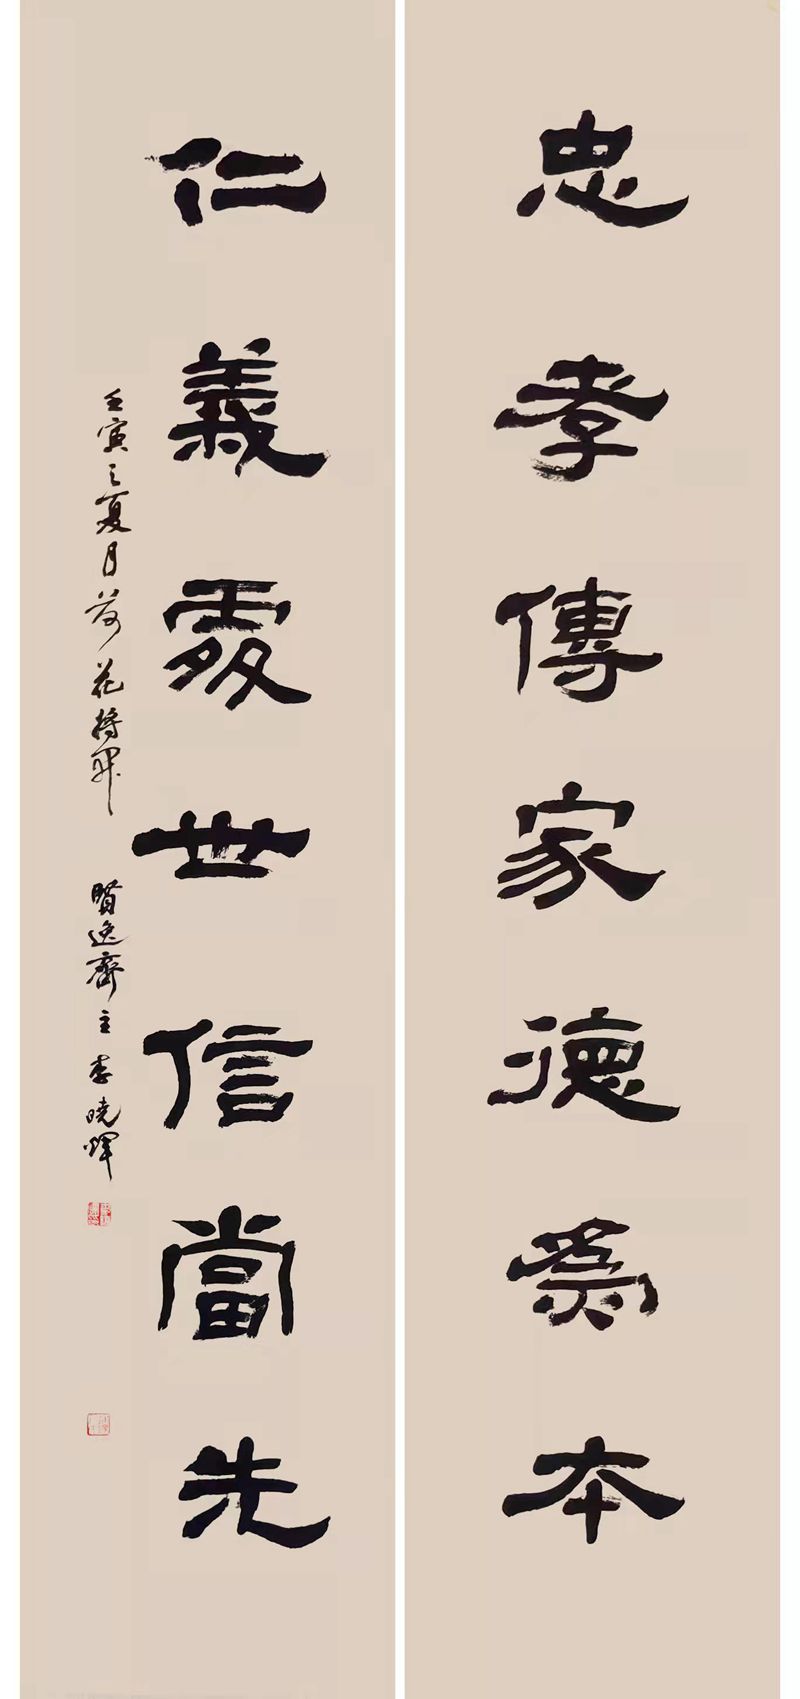 忠孝傳家德為本
仁義處世信當先
壬寅之夏月荷花將開
賢逸齋主李曉暉